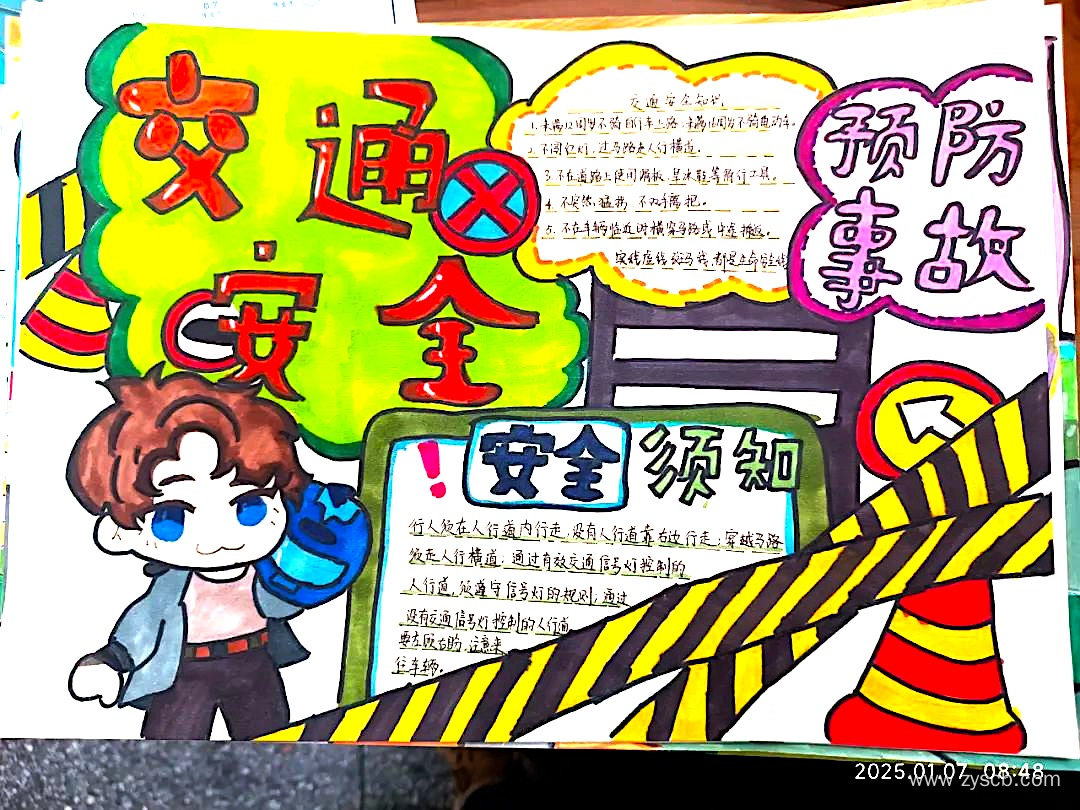 交通
安全
交通安全知识
1.未满12周岁不骑自行车上路,未满16周岁不骑电动车。
2.不闯红灯,过马路走人行横道。
3.不在道路上使用滑板、旱冰鞋等滑行工具。
4.不突然猛拐,不双手离把。
5.不在车辆临近时横穿马路或中途折返。
实线虚线斑马线,都是生命安全线
预防
事故
!安全须知
行人须在人行道内行走,没有人行道靠右边行走;穿越马路
须走人行横道;通过有效交通信号灯控制的
人行道,须遵守信号灯的规则;通过
没有交通信号灯控制的人行道
要左顾右盼,注意来
往车辆。
2025.01.07 08:48
www.zyscb.com